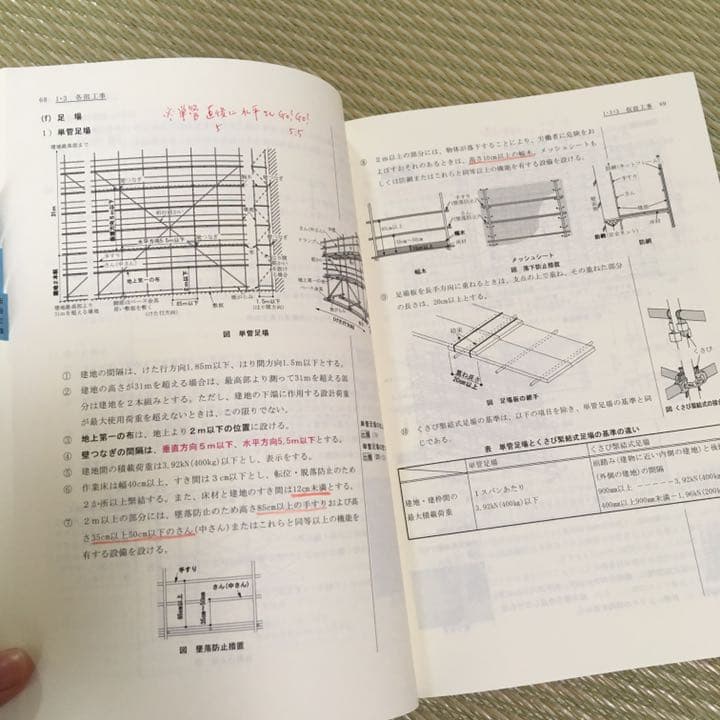 68 1・3 各般工事
(f) 足 場
※単管 直後に水平さんGo!Go!
5 5.5
1) 単管足場
建地最高部まで
31m
壁つなぎ
筋かい
水平方向5.5m以下
壁つなぎ
手すり
さん(中さん)
幅木
地上第一の布
1.85m以下
(けた行方向)
敷板
根がらみ
1.5m以下
(はり間方向)
建地最高部より
31mを超える場合
クランプ
ベース金具
図 単管足場
① 建地の間隔は、けた行方向1.85m以下、はり間方向1.5m以下とする。
② 建地の高さが31mを超える場合は、最高部より測って31mを超える部
分は建地を2本組みとする。ただし、建地の下端に作用する設計荷重
が最大使用荷重を超えないときは、この限りでない。
③ 地上第一の布は、地上より2m以下の位置に設ける。
④ 壁つなぎの間隔は、垂直方向5m以下、水平方向5.5m以下とする。
⑤ 建地間の積載荷重は3.92kN(400kg)以下とし、表示をする。
⑥ 作業床は幅40cm以上、すき間は3cm以下とし、転位・脱落防止のため
2か所以上緊結する。また、床材と建地のすき間は12cm未満とする。
⑦ 2m以上の部分には、墜落防止のため高さ85cm以上の手すりおよび高
さ35cm以上50cm以下のさん(中さん)またはこれらと同等以上の機能を
有する設備を設ける。
手すり
さん(中さん)
85cm以上
35cm~50cm
図 墜落防止措置
1・3 仮設工事 69
⑧ 2m以上の部分には、物体が落下することにより、労働者に危険をお
よぼすおそれのあるときは、高さ10cm以上の幅木、メッシュシートも
しくは防網またはこれらと同等以上の機能を有する設備を設ける。
手すり
さん
幅木
床材
幅木
メッシュシート
防網
図 落下防止措置
⑨ 足場板を長手方向に重ねるときは、支点の上で重ね、その重ねた部分
の長さは、20cm以上とする。
結束
重ね長さ
20cm以上
くさび
図 足場板の継手
図 くさび緊結式の接合
⑩ くさび緊結式足場の基準は、以下の項目を除き、単管足場の基準と同
じである。
表 単管足場とくさび緊結式足場の基準の違い
単管足場
くさび緊結式足場
建地・建枠間の
最大積載荷重
1スパンあたり
3.92kN(400kg)以下
布踏み(建物に近い内側の建地)と後
(外側の建地)の間隔
900mm以上 3.92kN(40
400mm以上900mm未満…1.96kN(200